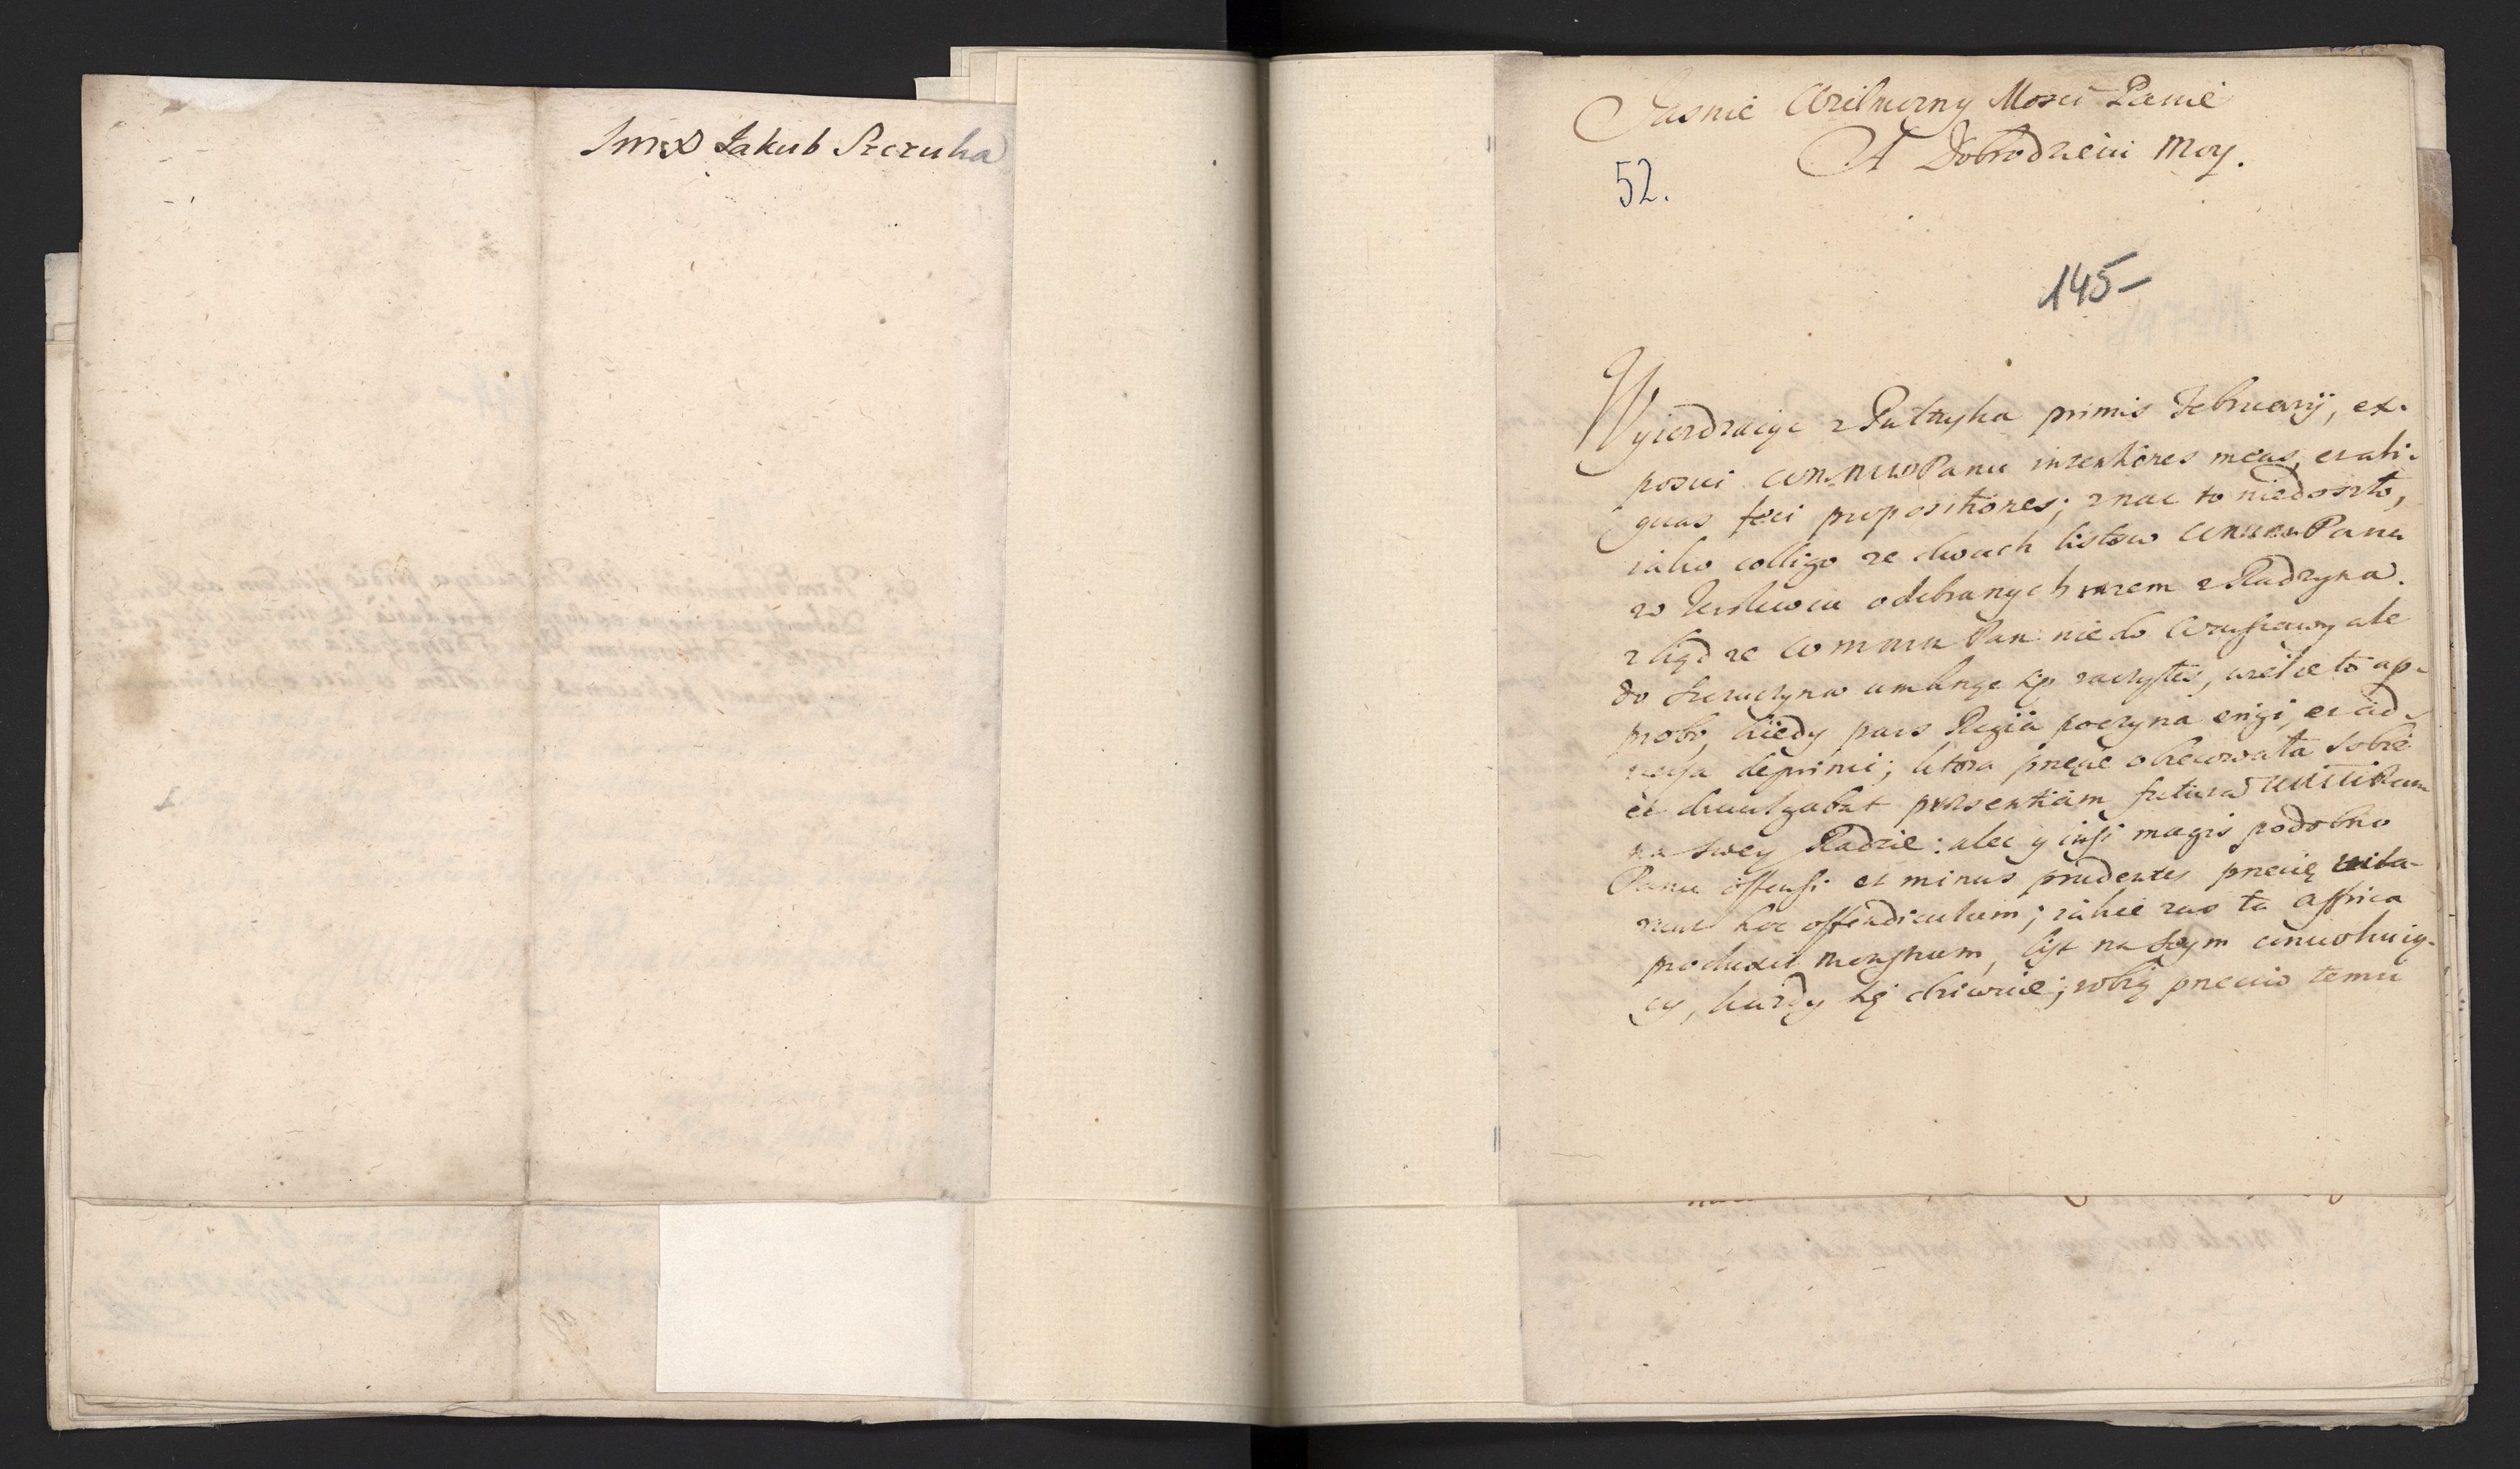 Jmx Jakub Szczuka
Jasnie Wielmozny Mosci Panie
A Dobrodzieiu Moy.
52.
145-
Wyiezdzaiąc z Pułtuska primis Februarij, ex-
posui WMM Panu intentiones meas, et ali-
quas feci propositiones; znac to niedoszło,
iako colligo ze dwuch listow WMM Panu
w odebranych razem z Radzyna.
z kąd ze WMM Pan nie do Warszawy ale
do Szczuczyna umknąc się raczyłes, wielce to ap-
probo, kiedy pars Regia poczyna erigi, et ad-
versa deprimi; ktora pręcie obiecowała sobie
et divulgabat praesentiam futuram WMM Pana
na swey Radzie: alec y insi magis podobno
Panu offensi et minus prudentes precię
hoc offendiculum; iakie zas ta Affrica
produxit monstrum, list na Seym
cy, kazdy się dziwuie; robią przeciw temu